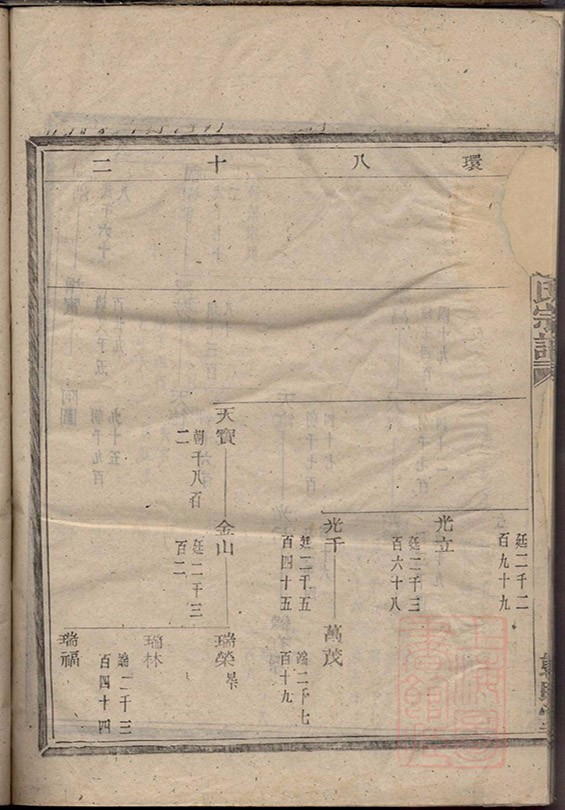 環八十二
氏宗譜
廷二千二
百九十九
光立
廷二千三
百六十八
光千
廷二千五
百四十五
萬茂
瑞二千七
百十九
天寶
朝千八石
二
金山
廷二千三
百二
瑞榮
瑞林
瑞二千三
百四十四
瑞福